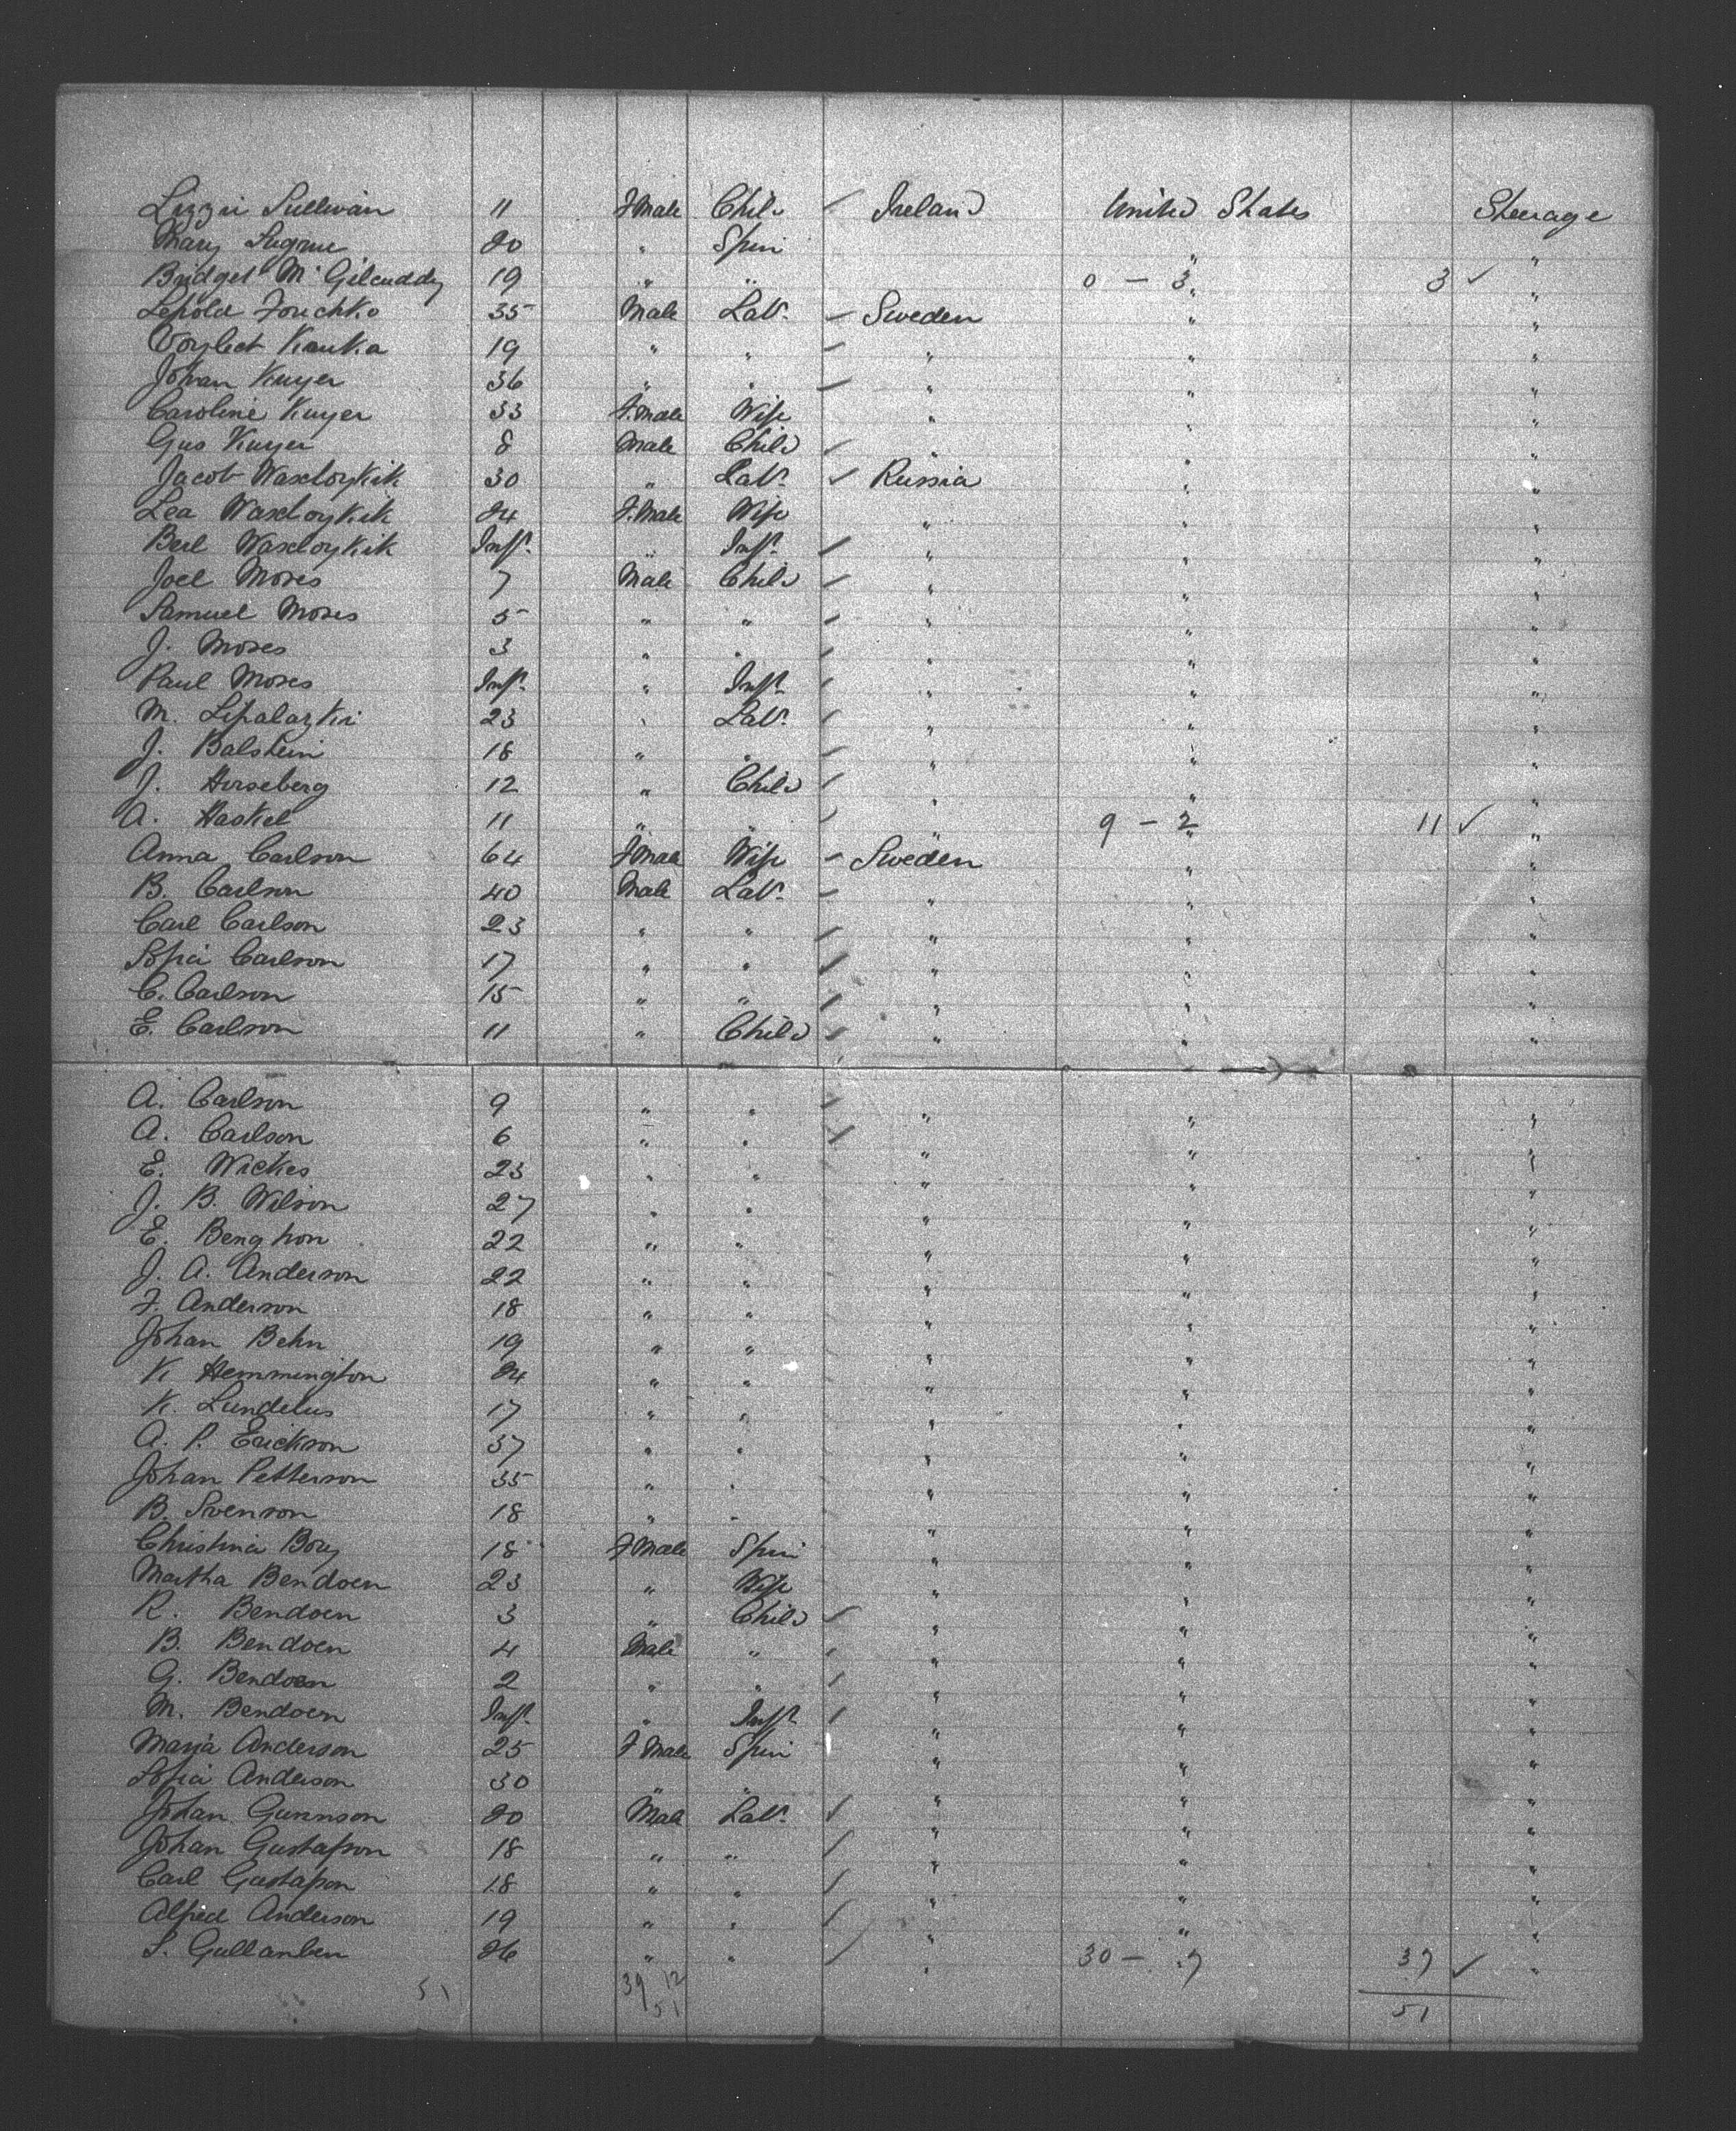 Lizzie Sullivan 11 F Male Child Ireland United States Steerage
Mary Sugrue 20 " Spin " "
Bridget McGilcuddy 19 " " 0 - 3 " 3 ✓ "
Lepold 35 Male Lab. Sweden " "
Kauka 19 " " " " "
Johan Kuyer 36 " " " " "
Caroline Kuyer 33 F. Male Wife " " "
Gus Kuyer 8 Male Child " " "
Jacob Waxloykik 30 " Lab. Russia " "
Lea Waxloykik 24 F. Male Wife " " "
Berl Waxloykik Inft. " Inft. " " "
Joel Moses 7 Male Child " " "
Samuel Moses 5 " " " " "
J. Moses 3 " " " " "
Paul Moses Inft. " Inft. " " "
M. Lipalazki 23 " Lab. " " "
J. Balstein 18 " " " " "
J. Hirseberg 12 " Child " " "
A. Haskel 11 " " " 9 - 2 " 11 ✓ "
Anna Carlson 64 F Male Wife Sweden " "
B. Carlson 40 Male Lab. " " "
Carl Carlson 23 " " " " "
Sofia Carlson 17 " " " " "
C. Carlson 15 " " " " "
E. Carlson 11 " Child " " "
A. Carlson 9 " " " " "
A. Carlson 6 " " " " "
E. Wickes 23 " " " " "
J. B. Wilson 27 " " " " "
E. Bengtson 22 " " " " "
J. A. Anderson 22 " " " " "
F. Anderson 18 " " " " "
Johan Behn 19 " " " " "
K Hemmington 24 " " " " "
K. Lundelus 17 " " " " "
A. P. Erickson 37 " " " " "
Johan Petterson 35 " " " " "
B. Svenson 18 " " " " "
Christina Bory 18 F Male Spin " " "
Martha Bendoen 23 " Wife " " "
R. Bendoen 3 " Child " " "
B. Bendoen 4 Male " " " "
G. Bendoen 2 " " " " "
M. Bendoen Inft. " Inft. " " "
Maria Anderson 25 F Male Spin " " "
Sofia Anderson 30 " " " " "
Johan Gunnson 20 Male Lab. " " "
Johan Gustafson 18 " " " " "
Carl Gustafson 18 " " " " "
Alfred Anderson 19 " " " " "
S. Gullanben 26 " " " 30 - 7 37 ✓ "
51 39 12 51
51